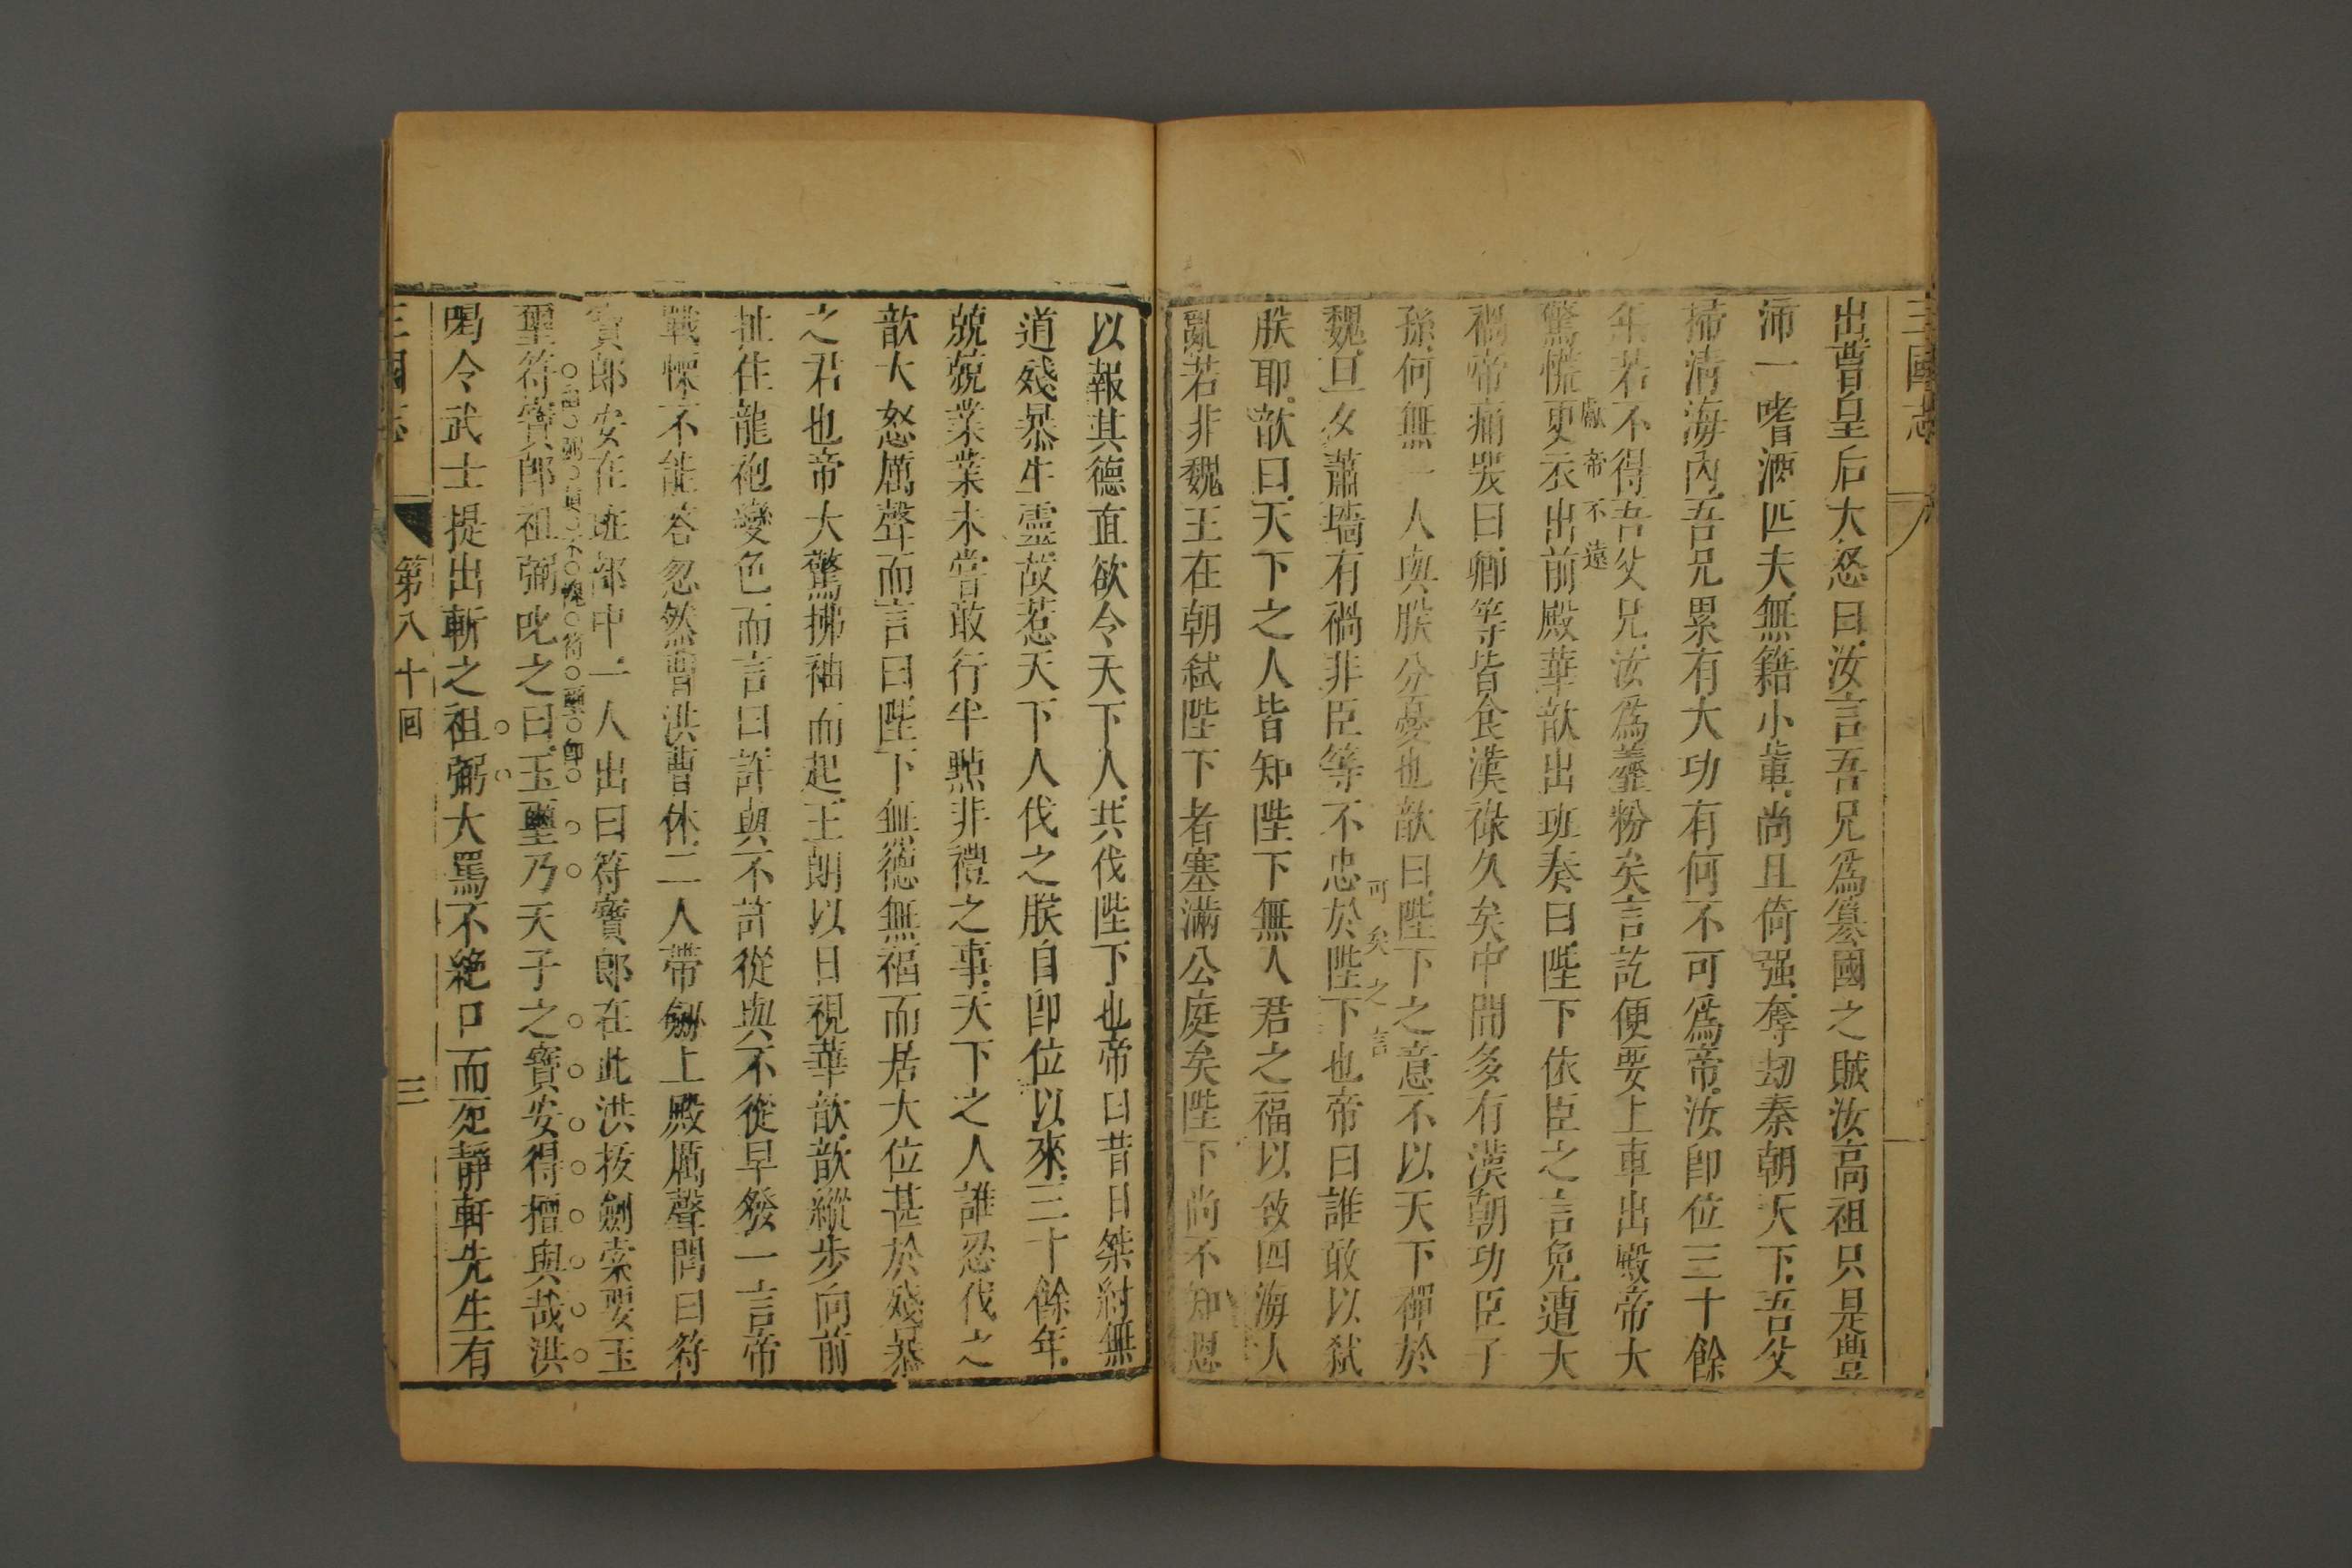 三國志
出曹皇后大怒曰汝言吾兄爲篡國之賊汝高祖只是豐
沛一嗜酒匹夫無籍小輩尚且倚强奪刼秦朝天下吾父
掃清海內吾兄累有大功有何不可爲帝汝卽位三十餘
年若不得吾父兄汝爲虀粉矣言訖便要上車出殿帝大
獻帝不遠
驚慌更衣出前殿華歆出班奏曰陛下依臣之言免遭大
禍帝痛哭曰卿等皆食漢祿久矣中間多有漢朝功臣子
孫何無一人與朕分憂也歆曰陛下之意不以天下禪於
可矣之言
魏旦夕蕭墻有禍非臣等不忠於陛下也帝曰誰敢以弑
朕耶歆曰天下之人皆知陛下無人君之福以致四海大
亂若非魏王在朝弑陛下者塞滿公庭矣陛下尚不知恩
以報其德直欲令天下人共伐陛下也帝曰昔日桀紂無
道殘暴生靈故惹天下人伐之朕自卽位以來三十餘年
兢兢業業未嘗敢行半點非禮之事天下之人誰忍伐之
歆大怒厲聲而言曰陛下無德無福而居大位甚於殘暴
之君也帝大驚拂袖而起王朗以目視華歆歆縱步向前
扯住龍袍變色而言曰許與不許從與不從早發一言帝
戰慄不能答忽然曹洪曹休二人帶劍上殿厲聲問曰符
寶郎安在班部中一人出曰符寶郎在此洪拔劍索要玉
祖弼眞不愧符璽郎
璽符寶郎祖弼叱之曰玉璽乃天子之寶安得擅與哉洪
喝令武士提出斬之祖弼大罵不絶口而死靜軒先生有
三國志
第八十回
三